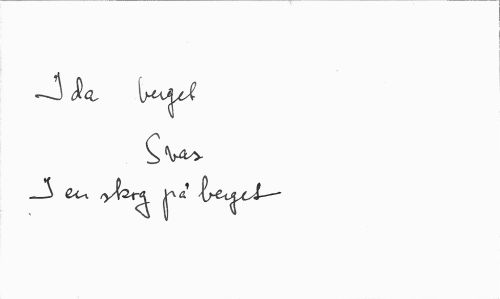 Ida berget
Svas
I en skog på berget